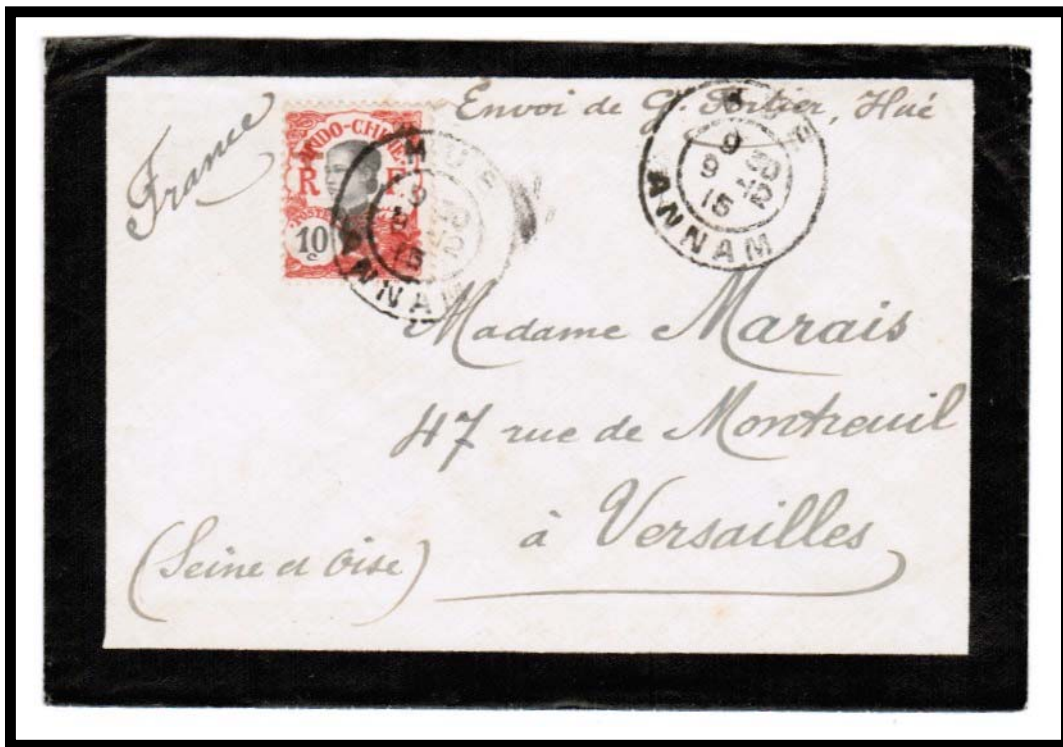 France
Envoi de G. Portier, Hué
INDO-CHINE
R F
POSTES
10
c
HUE
9
9 15
ANNAM
HUE
9
9 15
ANNAM
Madame Marais
47 rue de Montreuil
à Versailles
(Seine et Oise)